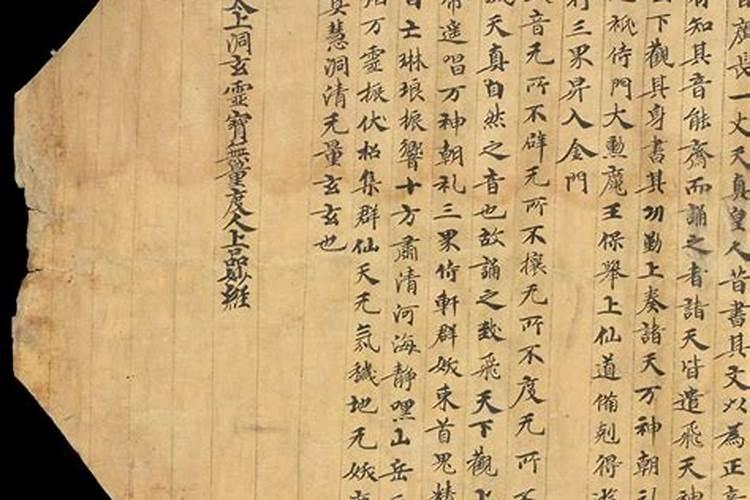 廣長一丈天真皇人昔書其文以為正音
有知其音能齋而誦之者諸天皆遣飛天神
下觀其身書其功勤上奏諸天万神朝礼
祇侍門大勳魔王保舉上仙道備剋得
三界昇入金門
音无所不辟无所不攘无所不度无所不
天真自然之音也故誦之致飛天下觀上
帝遥唱万神朝礼三界侍軒群妖束首鬼精
自亡琳琅振響十方肅清河海靜嘿山岳
万靈振伏招集群仙天无氛穢地无妖
慧洞清无量玄玄也
太上洞玄靈寶無量度人上品妙經